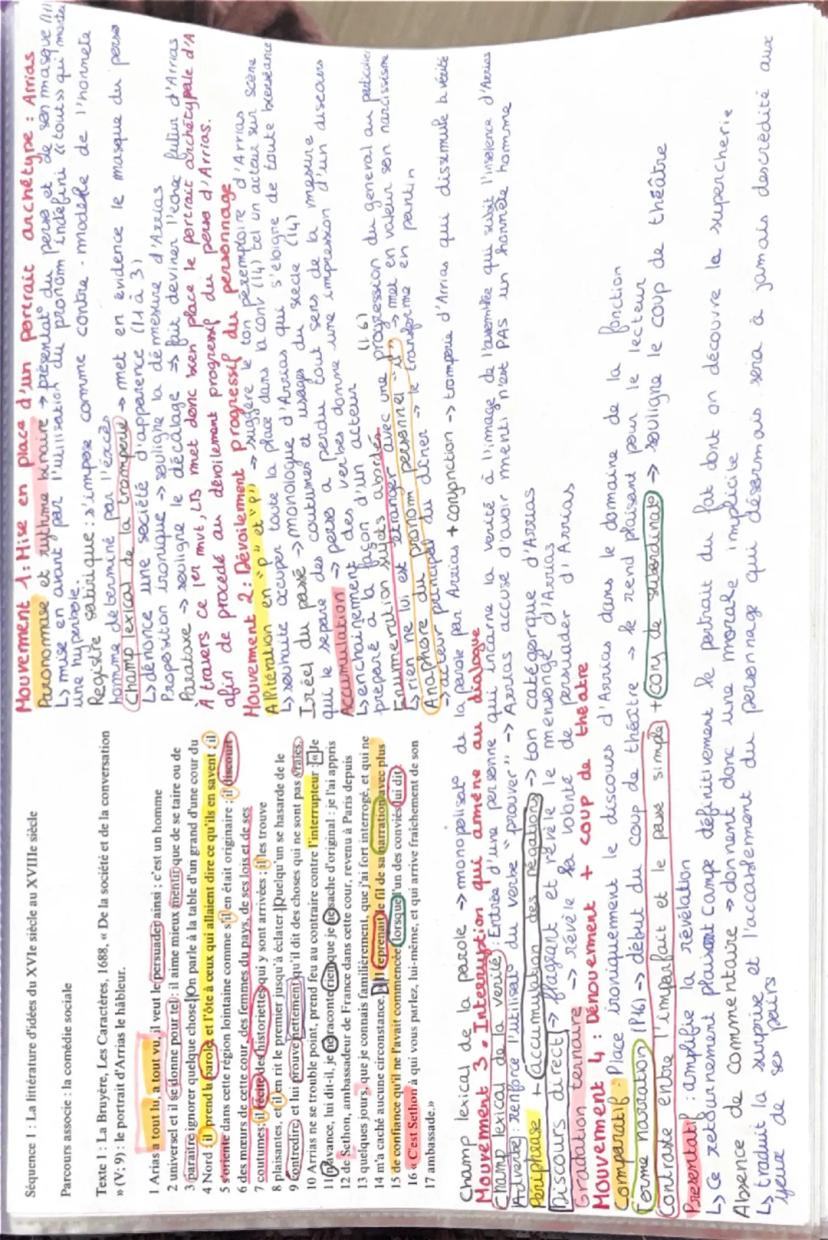 Séquence 1 : La littérature d'idées du XVIe siècle au XVIIIe siècle
Parcours associe : la comédie sociale
Texte 1 : La Bruyère, Les Caractères, 1688, « De la société et de la conversation
» (V; 9) : le portrait d'Arrias le hâbleur.
1 Arrias a tout lu, a tout vu, il veut le persuader ainsi ; c'est un homme
2 universel et il se donne pour tel : il aime mieux mentir que de se taire ou de
3 paraître ignorer quelque chose. On parle à la table d'un grand d'une cour du
4 Nord : il prend la parole, et l'ôte à ceux qui allaient dire ce qu'ils en savent ; il
5 s'oriente dans cette région lointaine comme s'il en était originaire ; il discourt
6 des mœurs de cette cour, des femmes du pays, de ses lois et de ses
7 coutumes ; il récite des historiettes qui y sont arrivées ; il les trouve
8 plaisantes, et il en rit le premier jusqu'à éclater. Quelqu'un se hasarde de le
9 contredire, et lui prouve nettement qu'il dit des choses qui ne sont pas vraies.
10 Arrias ne se trouble point, prend feu au contraire contre l'interrupteur : « Je
11 n'avance, lui dit-il, je ne raconte rien que je ne sache d'original : je l'ai appris
12 de Sethon, ambassadeur de France dans cette cour, revenu à Paris depuis
13 quelques jours, que je connais familièrement, que j'ai fort interrogé, et qui ne
14 m'a caché aucune circonstance. » Il reprenait le fil de sa narration avec plus
15 de confiance qu'il ne l'avait commencée, lorsque l'un des conviés lui dit :
16 « C'est Sethon à qui vous parlez, lui-même, et qui arrive fraîchement de son
17 ambassade.»
Mouvement 1 : Mise en place d'un portrait archétype : Arrias
Paronomase et rythme binaire → présentat° du perso et de son masque (l1)
↳ mise en avant par l'utilisation du pronom indéfini « tout » qui montre
une hyperbole.
Registre satirique : s'impose comme contre-modèle de l'honnête
homme déterminé par l'excès
Champ lexical de la tromperie → met en évidence le masque du perso
↳ dénonce une société d'apparence (l1 à 3)
Proposition ironique → souligne la démesure d'Arrias
Parataxe → souligne le décalage ⇒ fait deviner l'échec futur d'Arrias
A travers ce 1er mvt, LB met donc bien place le portrait archétypale d'A
afin de procédé au dévoilement progressif du perso d'Arrias.
Mouvement 2 : Dévoilement progressif du personnage
Allitération en "p" et "r" → suggère le ton péremptoire d'Arrias
↳ souhaite occuper toute la place dans la conv (l4) tel un acteur sur scène
Irréel du passé → monologue d'Arrias qui s'éloigne de toute bienséance
qui le sépare des coutumes et usages du siècle (l4)
Accumulation → perso a perdu tout sens de la mesure
↳ enchaînement des verbes donne une impression d'un discours
préparé à la façon d'un acteur
Enumération sujets abordés (l.6)
↳ rien ne lui est étranger avec une progression du general au particulier
Anaphore du pronom personnel "il" → met en valeur son narcissisme
→ acteur principal du dîner → le transforme en pantin
Champ lexical de la parole → monopolisat° de la parole par Arrias + conjonction → tromperie d'Arrias qui dissimule la vérité
Mouvement 3 : Interruption qui amène au dialogue
Champ lexical de la vérité : Entrée d'une personne qui incarne la verité à l'image de l'assemblée qui subit l'insolence d'Arrias
Adverbe : renforce l'utilisat° du verbe "prouver" → Arrias accusé d'avoir menti n'est PAS un honnête homme
Périphrase + accumulation des négations → ton catégorique d'Arrias
Discours direct → flagrant et révèle le mensonge d'Arrias
Gradation ternaire → révèle la volonté de persuader d'Arrias
Mouvement 4 : Dénouement + coup de theatre
Comparatif : Place ironiquement le discours d'Arrias dans le domaine de la fonction
Terme narration (l14) → début du coup de théâtre → le rend plaisant pour le lecteur
Contraste entre l'imparfait et le passé simple + conj de subordinat° → souligne le coup de théâtre
Présentatif : amplifie la révélation
↳ Ce retournement plaisant campe définitivement le portrait du fat dont on découvre la supercherie
Absence de commentaire → donnent donc une morale implicite
↳ traduit la surprise et l'accablement du personnage qui désormais sera à jamais descrédité aux
yeux de ses pairs